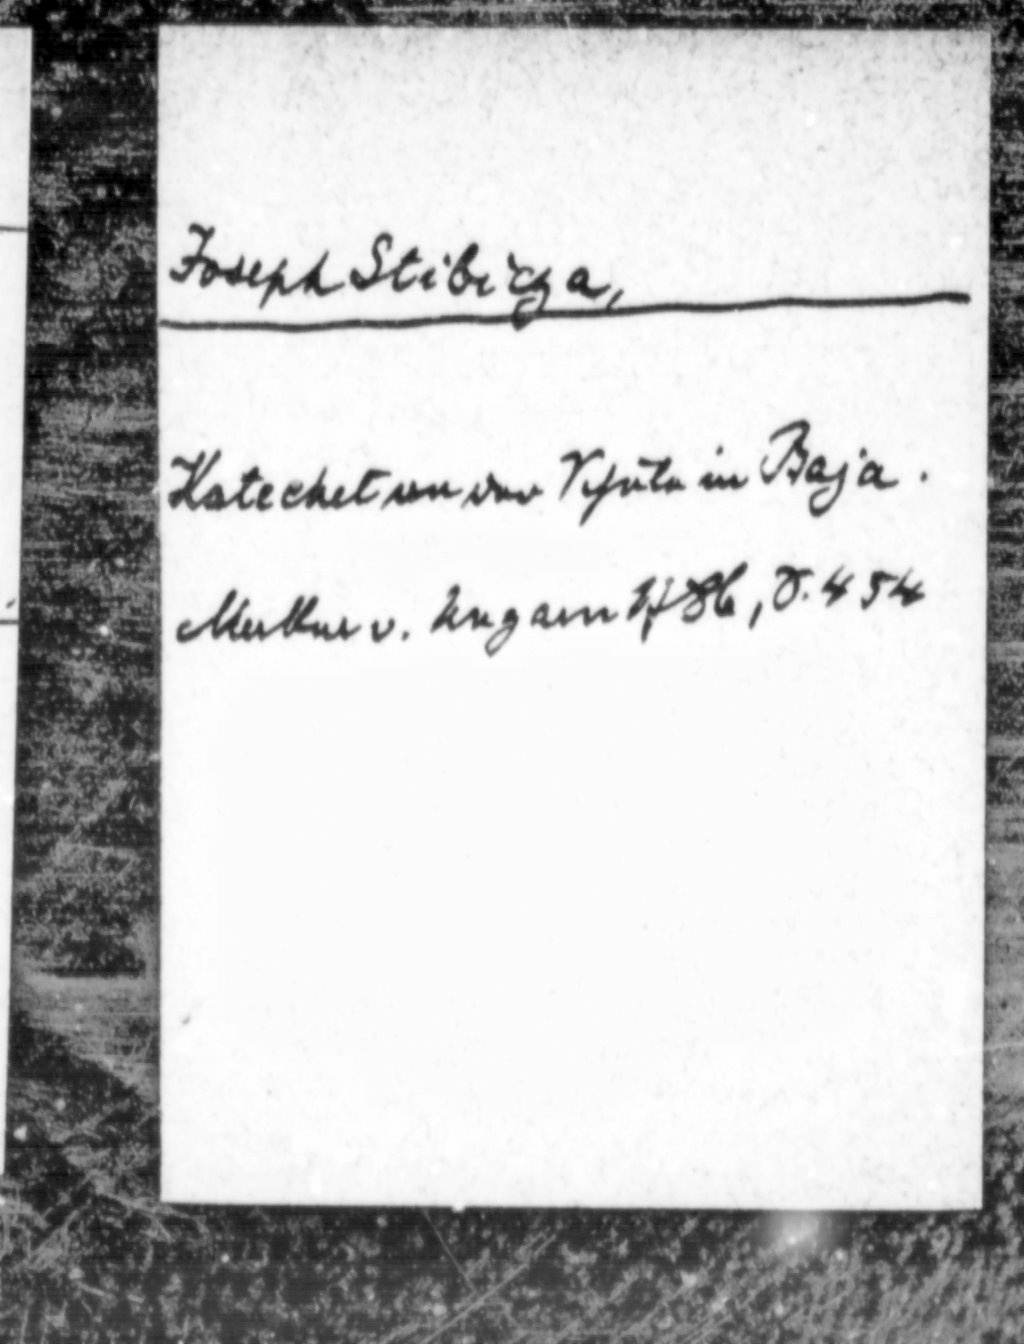 Joseph Stibicza,
Katechet an der Schule in Baja.
Merkur v. Ungarn 1786, S. 454